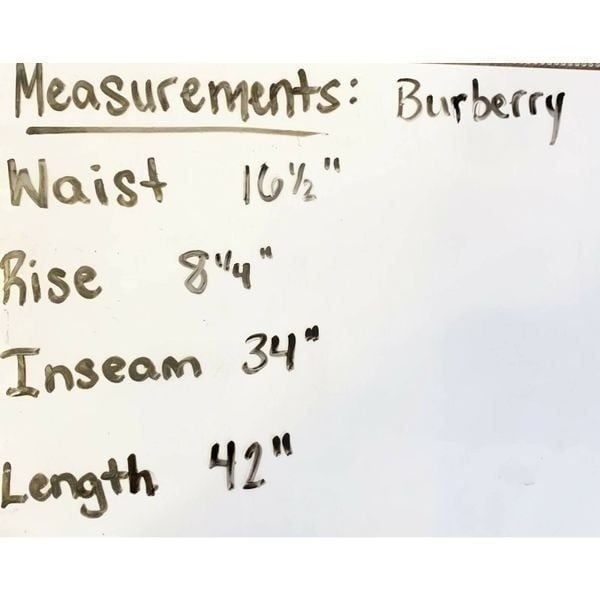 Measurements: Burberry
Waist 16½"
Rise 8¼"
Inseam 34"
Length 42"